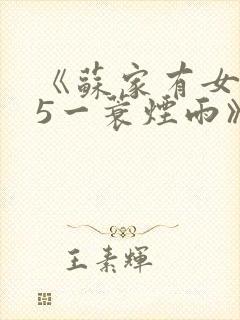 《蘇家有女
5一蓑煙雨》
王素輝